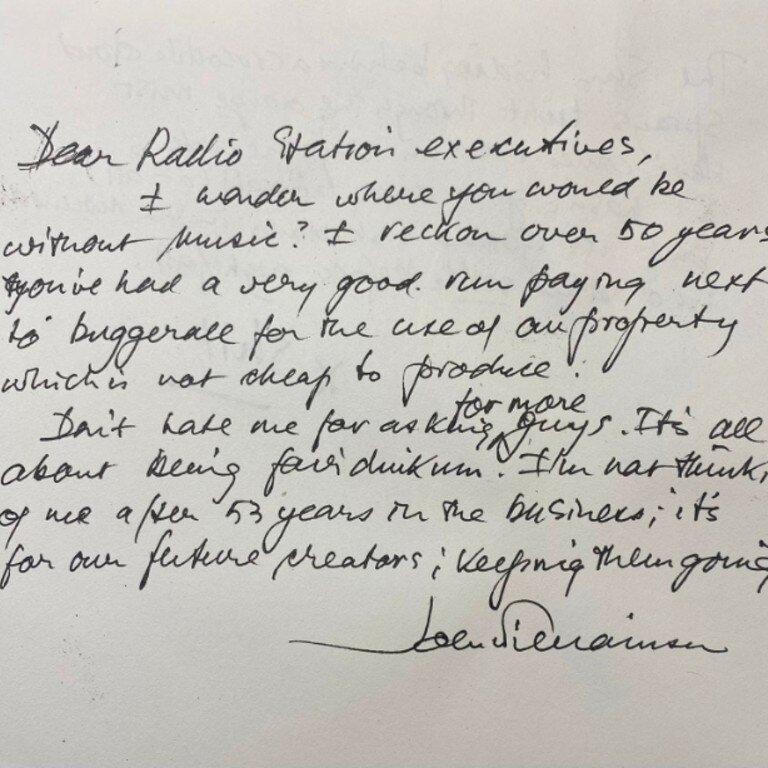 Dear Radio Station executives,
I wonder where you would be
without music? I reckon over 50 years
you've had a very good run paying next
to buggerall for the use of our property
which is not cheap to produce.
for more
Don't hate me for asking, guys. It's all
about being fair dinkum. I'm not think
of me after 53 years in the business; it's
for our future creators; keeping them going
John Williamson